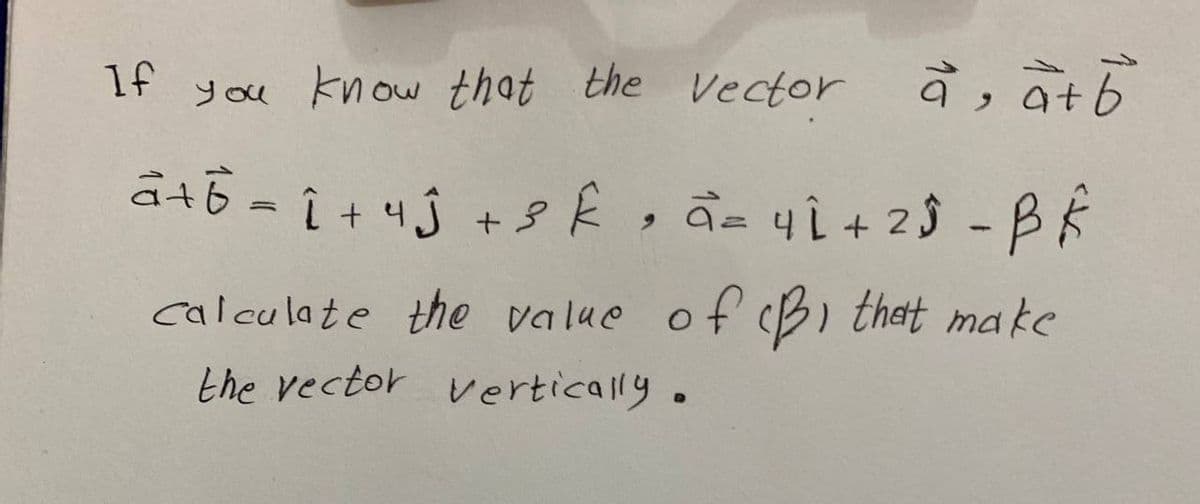 If you know that the vector a⃗ , a⃗+b⃗
a⃗+b⃗ = î + 4ĵ + 3 k̂ , a⃗= 4î + 2ĵ - β k̂
calculate the value of (β) that make
the vector vertically .